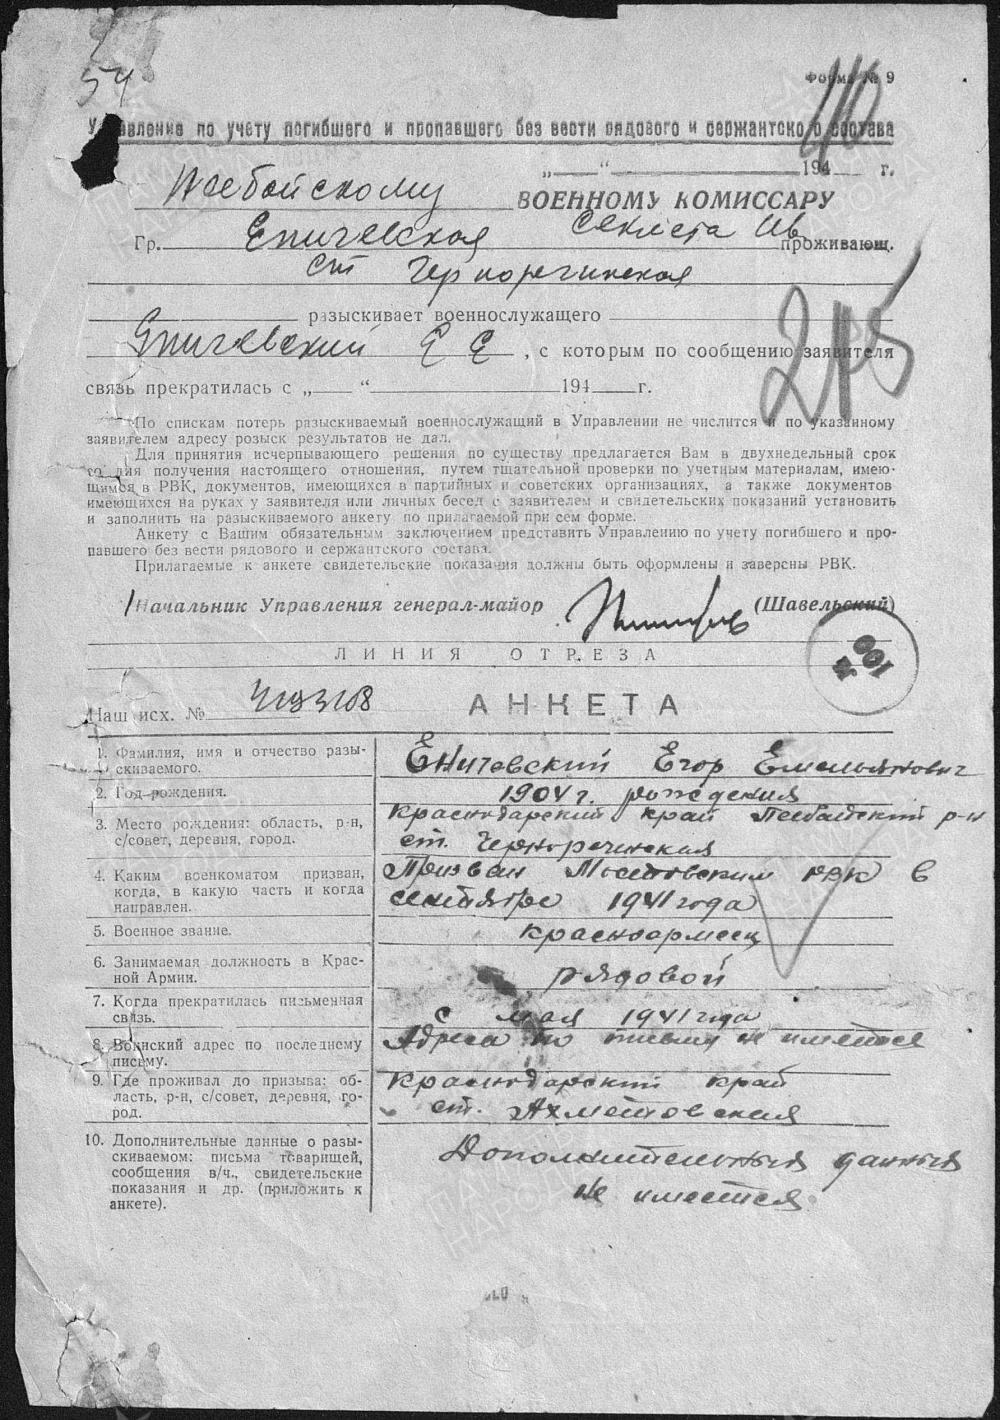 54
Форма № 9
110
Управление по учету погибшего и пропавшего без вести рядового и сержантского состава
„___“ ______ 194__ г.
Псебайскому ВОЕННОМУ КОМИССАРУ
Гр. Еничевская Секлета Ив проживающ.
ст Черноречинская
разыскивает военнослужащего
Еничевский Е Е, с которым по сообщению заявителя
215
связь прекратилась с „___“ ______ 194__ г.
По спискам потерь разыскиваемый военнослужащий в Управлении не числится и по указанному
заявителем адресу розыск результатов не дал.
Для принятия исчерпывающего решения по существу предлагается Вам в двухнедельный срок
со дня получения настоящего отношения, путем тщательной проверки по учетным материалам, имею-
щимся в РВК, документов, имеющихся в партийных и советских организациях, а также документов
имеющихся на руках у заявителя или личных бесед с заявителем и свидетельских показаний установить
и заполнить на разыскиваемого анкету по прилагаемой при сем форме.
Анкету с Вашим обязательным заключением представить Управлению по учету погибшего и про-
павшего без вести рядового и сержантского состава.
Прилагаемые к анкете свидетельские показания должны быть оформлены и заверены РВК.
Начальник Управления генерал-майор (Шавельский)
ЛИНИЯ ОТРЕЗА
001
Наш исх. № АНКЕТА
1. Фамилия, имя и отчество разы-
скиваемого.
Еничевский Егор Емельянович
2. Год рождения.
1904 г. рождения
3. Место рождения: область, р-н,
с/совет, деревня, город.
Краснодарский край Псебайский р-н
ст. Черноречинская
4. Каким военкоматом призван,
когда, в какую часть и когда
направлен.
Призван Мостовским РВК в
сентябре 1941 года
5. Военное звание.
красноармеец
6. Занимаемая должность в Крас-
ной Армии.
рядовой
7. Когда прекратилась письменная
связь.
с мая 1941 года
8. Воинский адрес по последнему
письму.
Адреса по письму не имеется
9. Где проживал до призыва: об-
ласть, р-н, с/совет, деревня, го-
род.
Краснодарский край
ст. Ахметовская
10. Дополнительные данные о разы-
скиваемом: письма товарищей,
сообщения в/ч., свидетельские
показания и др. (приложить к
анкете).
Дополнительных данных
не имеется.